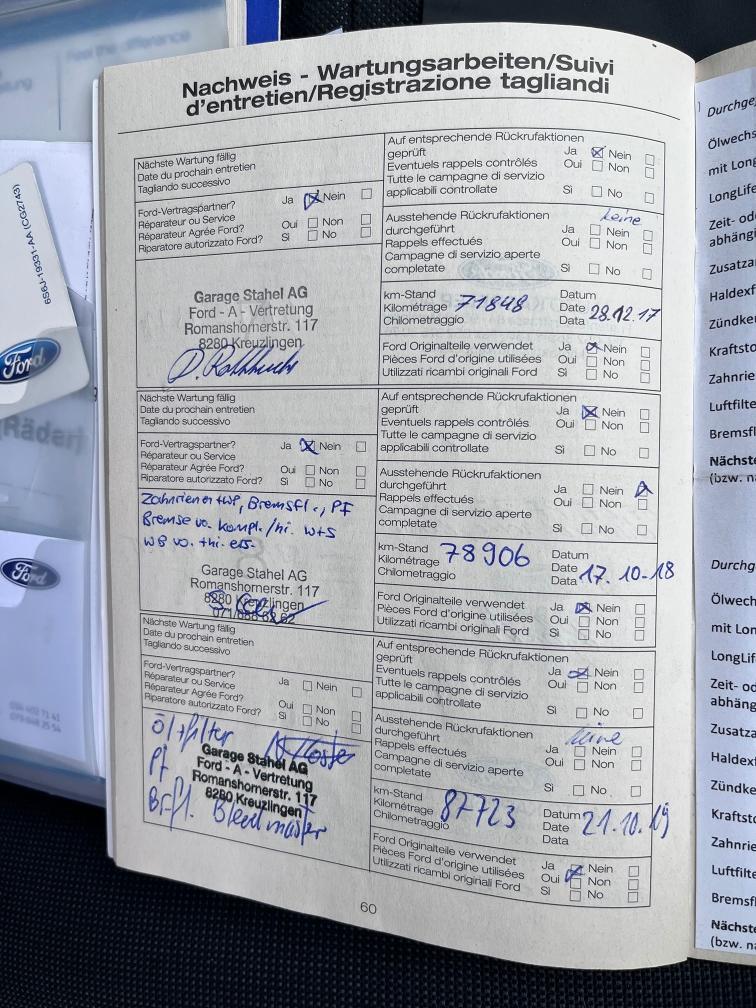 Nachweis - Wartungsarbeiten/Suivi
d'entretien/Registrazione tagliandi
Nächste Wartung fällig
Date du prochain entretien
Tagliando successivo
Ford-Vertragspartner? Ja Nein
Réparateur ou Service
Réparateur Agrée Ford? Oui Non
Riparatore autorizzato Ford? Sì No
Garage Stahel AG
Ford - A - Vertretung
Romanshornerstr. 117
8280 Kreuzlingen
Auf entsprechende Rückrufaktionen
geprüft Ja Nein
Eventuels rappels contrôlés Oui Non
Tutte le campagne di servizio
applicabili controllate Sì No
Ausstehende Rückrufaktionen keine
durchgeführt Ja Nein
Rappels effectués Oui Non
Campagne di servizio aperte
completate Sì No
km-Stand Datum
Kilométrage 71848 Date 28.12.17
Chilometraggio Data
Ford Originalteile verwendet Ja Nein
Pièces Ford d'origine utilisées Oui Non
Utilizzati ricambi originali Ford Sì No
Nächste Wartung fällig
Date du prochain entretien
Tagliando successivo
Ford-Vertragspartner? Ja Nein
Réparateur ou Service
Réparateur Agrée Ford? Oui Non
Riparatore autorizzato Ford? Sì No
Zahnriemen + WP, Bremsfl., PF
Bremse vo. kompl./hi. W+S
WB vo. + hi. ers.
Garage Stahel AG
Romanshornerstr. 117
8280 Kreuzlingen
Auf entsprechende Rückrufaktionen
geprüft Ja Nein
Eventuels rappels contrôlés Oui Non
Tutte le campagne di servizio
applicabili controllate Sì No
Ausstehende Rückrufaktionen
durchgeführt Ja Nein
Rappels effectués Oui Non
Campagne di servizio aperte
completate Sì No
km-Stand Datum
Kilométrage 78906 Date
Chilometraggio Data 17.10-18
Ford Originalteile verwendet Ja Nein
Pièces Ford d'origine utilisées Oui Non
Utilizzati ricambi originali Ford Sì No
Nächste Wartung fällig
Date du prochain entretien
Tagliando successivo
Ford-Vertragspartner? Ja Nein
Réparateur ou Service
Réparateur Agrée Ford? Oui Non
Riparatore autorizzato Ford? Sì No
Öl + filter
PF
Brfl.
Garage Stahel AG
Ford - A - Vertretung
Romanshornerstr. 117
8280 Kreuzlingen
Auf entsprechende Rückrufaktionen
geprüft Ja Nein
Eventuels rappels contrôlés Oui Non
Tutte le campagne di servizio
applicabili controllate Sì No
Ausstehende Rückrufaktionen keine
durchgeführt Ja Nein
Rappels effectués Oui Non
Campagne di servizio aperte
completate Sì No
km-Stand Datum
Kilométrage 87723 Date 21.10.19
Chilometraggio Data
Ford Originalteile verwendet Ja Nein
Pièces Ford d'origine utilisées Oui Non
Utilizzati ricambi originali Ford Sì No
60
6S6J-19331-AA (CG2749)
Ford
Räder)
Ford
Ölwechs
mit Lon
LongLife
Zeit- od
abhängi
Zusatza
Haldexf
Zündke
Kraftsto
Zahnrie
Luftfilte
Bremsfl
Nächste
(bzw. na
Durchg
Ölwech
mit Lon
LongLif
Zeit- o
abhäng
Zusatz
Haldex
Zündke
Kraftst
Zahnri
Luftfilte
Bremsf
Nächst
(bzw. n